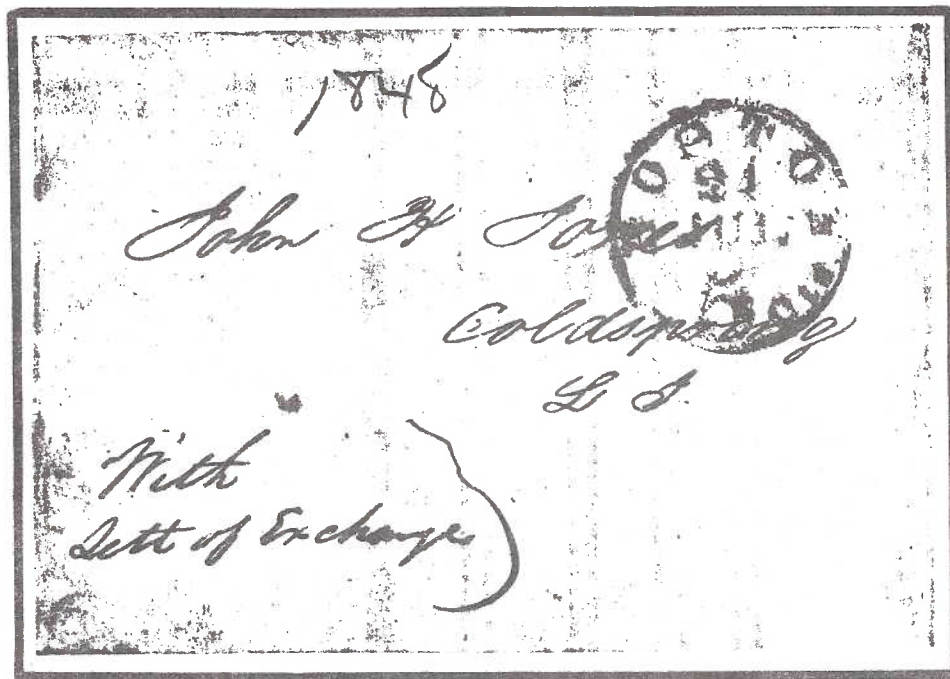 1848
John H Jones
Coldspring
L I.
With
Lett of Exchange